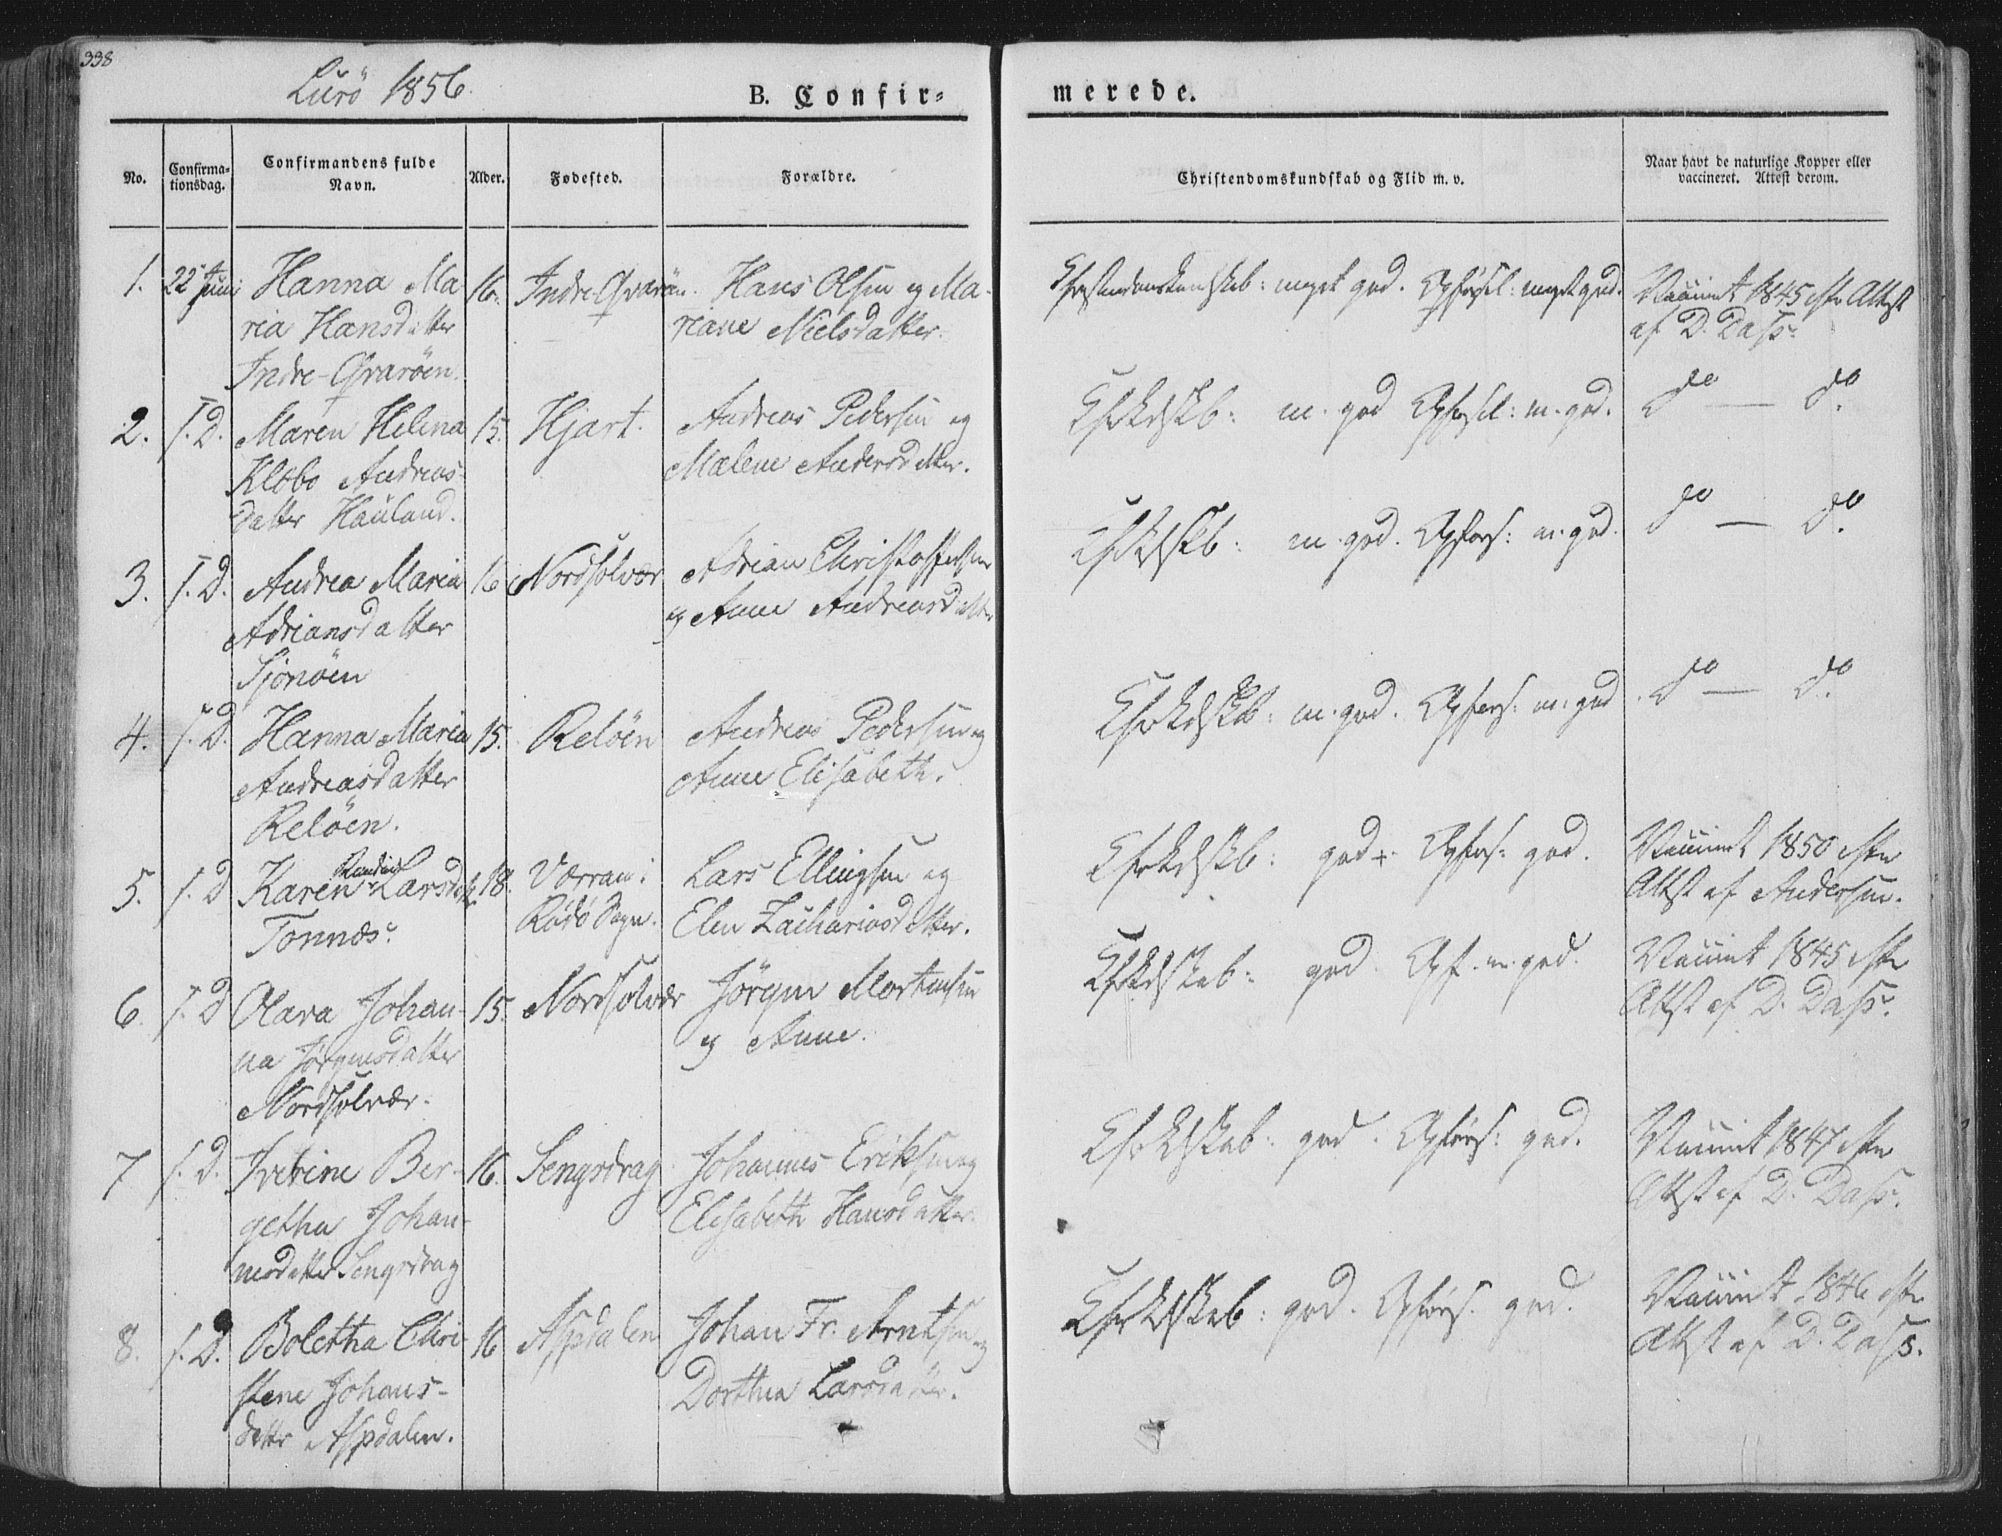 338
Lurö 1856.
B. Confir-
merede.
No.
Confirma-
tionsdag.
Confirmandens fulde
Navn.
Alder.
Fødested.
Forældre.
Christendomskundskab og Flid m. v.
Naar havt de naturlige Kopper eller
vaccineret. Attest derom.
1. 22 Juni Hanna Ma 16. Indre Qvaröen. Hans Olsen og Ma-
ria Hansdatter riane Nielsdatter.
Indre-Qvaröen.
Christendomskundskab: meget god. Opførsel: meget god. Vaccinert 1845 efter Attest
af D. Dass.
2. s. D. Maren Helena 15. Hjart. Andreas Pedersen og
Klobo Andreas- Malene Andersdatter.
datter Hauland.
m. god Opførsel: m. god. do — do.
3. s. D. Andrea Maria 16 Nordsolvær Adrian Christoffersen
Adriansdatter og Anne Andreasdatter
Sjonöen
m. god. Opførs: m. god. do — do.
4. s. D. Hanna Maria 15. Relöen Andreas Pedersen og
Andreasdatter Anne Elisabeth.
Relöen.
m. god. Opførs: m. god do — do.
5. s. D Karen Larsdatter 18. Værran i Lars Ellingsen og
Tonnes. Rödö Sogn. Elen Zachariasdatter.
god. Opførs: god. Vaccinert 1850 efter
Attest af Andersen.
6. s. D Olava Johan- 15. Nordsolvær Jörgen Mortensen
na Jörgensdatter og Anne.
Nordsolvær.
god. Opf. m. god. Vaccinert 1845 efter
Attest af D. Dass.
7 s. D. Ivetrine Ber- 16. Sengsdrag Johannes Eriksen og
getha Johan- Elisabeth Hansdatter.
nesdatter Sengsdrag
god. Opførs: god. Vaccinert 1847 efter
Attest af D. Dass.
8. s. D. Boletha Chri- 16 Aspdalen Johan Fr. Arntsen og
stene Johans- Dorthea Larsdatter.
datter Aspdalen.
god. Opførs. god. Vaccinert 1846 efter
Attest af D. Dass.